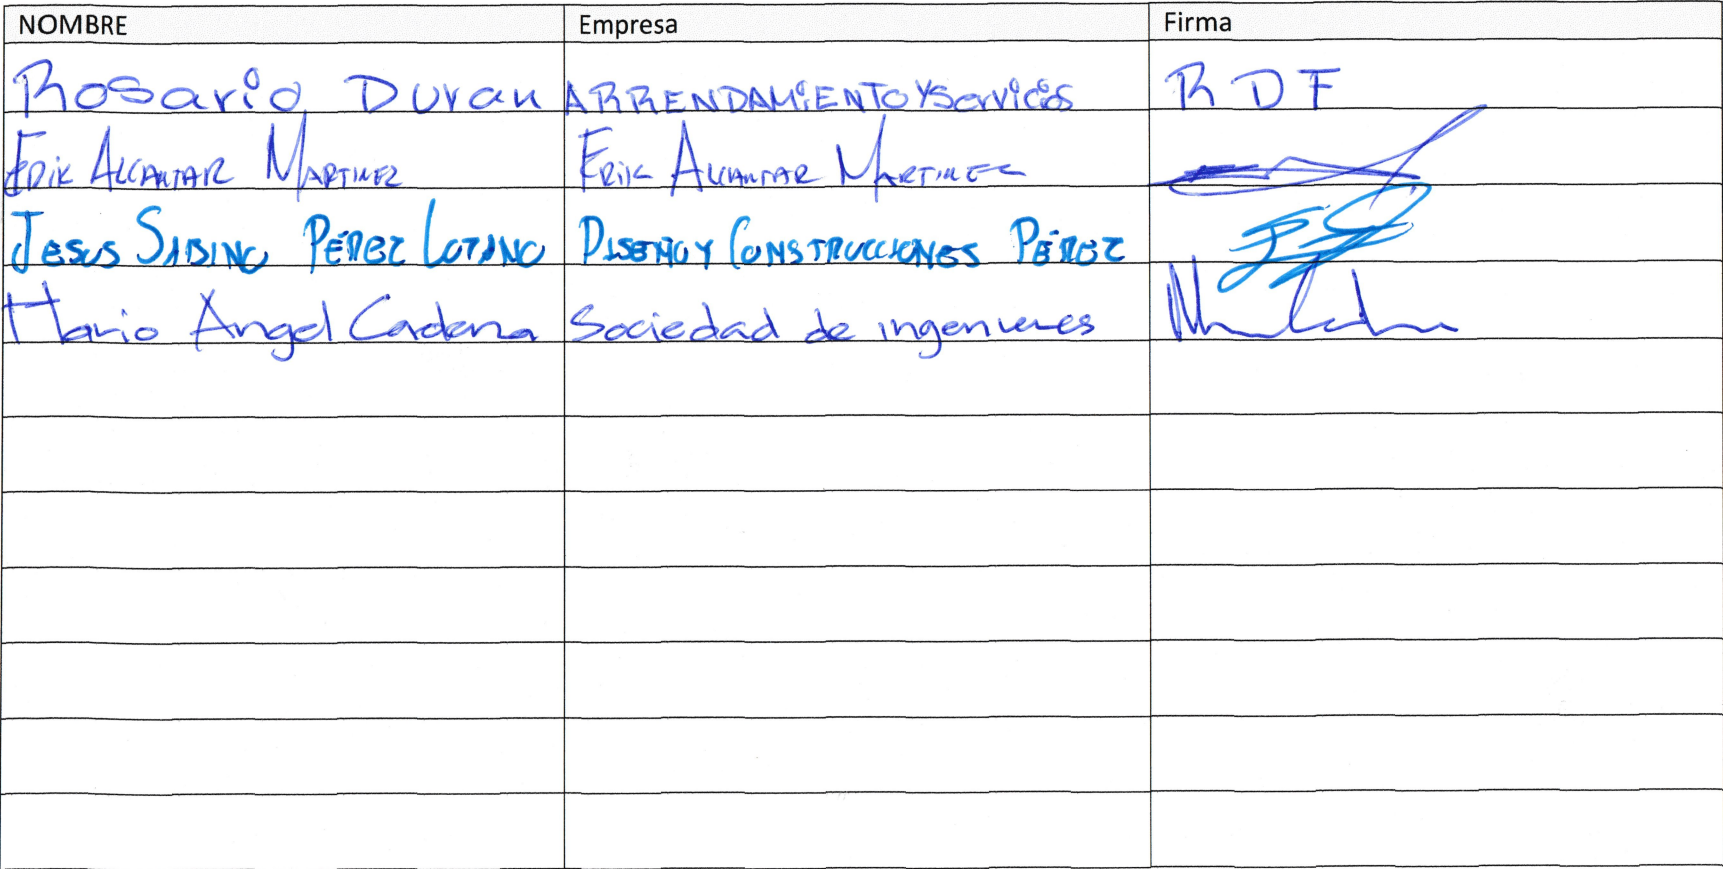 NOMBRE Empresa Firma
Rosario Duran ARRENDAMiENTO Y Servicios R D F
ERIK ALCANTAR MARTINEZ ERIK ALCANTAR MARTINEZ
JESUS SABINO PÉREZ LOZANO DISEÑO Y CONSTRUCCIONES PÉREZ
Mario Angel Cadena Sociedad de ingenieros